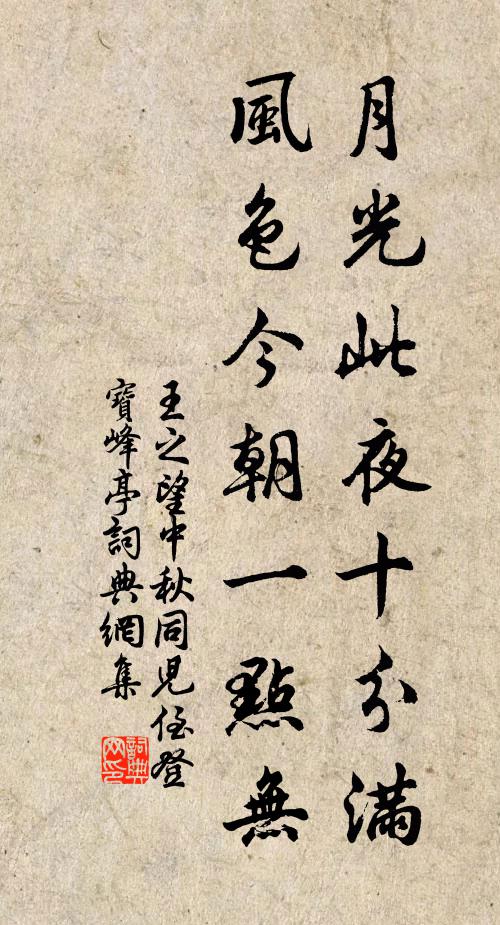 月光此夜十分滿
風色今朝一點無
王之望中秋同兒侄登
寶峰亭詞典網集
詞典
网印